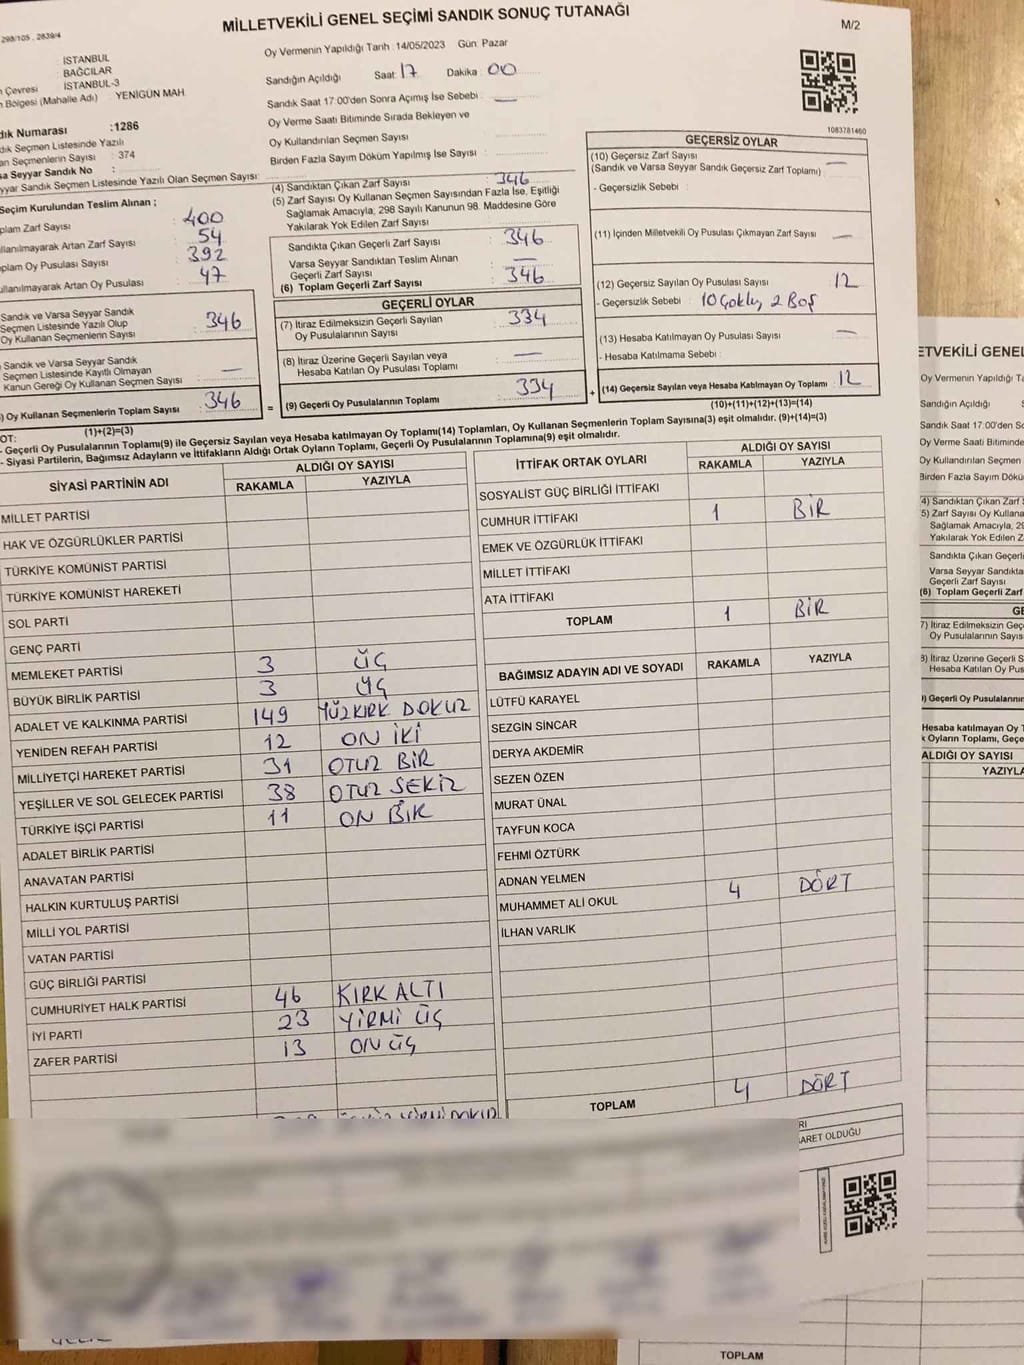 298/105 . 2839/4
MİLLETVEKİLİ GENEL SEÇİMİ SANDIK SONUÇ TUTANAĞI
M/2
: İSTANBUL
: BAĞCILAR
n Çevresi İSTANBUL-3
n Bölgesi (Mahalle Adı) YENİGÜN MAH.
Oy Vermenin Yapıldığı Tarih :14/05/2023 Gün: Pazar
Sandığın Açıldığı Saat: 17 Dakika : 00
Sandık Saat 17:00'den Sonra Açımış İse Sebebi : —
Oy Verme Saati Bitiminde Sırada Bekleyen ve
Oy Kullandırılan Seçmen Sayısı
Birden Fazla Sayım Döküm Yapılmış İse Sayısı :
dık Numarası :1286
dık Seçmen Listesinde Yazılı
an Seçmenlerin Sayısı : 374
sa Seyyar Sandık No :
yyar Sandık Seçmen Listesinde Yazılı Olan Seçmen Sayısı:
Seçim Kurulundan Teslim Alınan ;
plam Zarf Sayısı : 400
llanılmayarak Artan Zarf Sayısı : 54
plam Oy Pusulası Sayısı : 392
ullanılmayarak Artan Oy Pusulası : 47
Sandık ve Varsa Seyyar Sandık
Seçmen Listesinde Yazılı Olup
Oy Kullanan Seçmenlerin Sayısı : 346
Sandık ve Varsa Seyyar Sandık
Seçmen Listesinde Kayıtlı Olmayan
Kanun Gereği Oy Kullanan Seçmen Sayısı : —
) Oy Kullanan Seçmenlerin Toplam Sayısı : 346
(1)+(2)=(3)
(4) Sandıktan Çıkan Zarf Sayısı : 346
(5) Zarf Sayısı Oy Kullanan Seçmen Sayısından Fazla İse, Eşitliği
Sağlamak Amacıyla, 298 Sayılı Kanunun 98. Maddesine Göre
Yakılarak Yok Edilen Zarf Sayısı :
Sandıkta Çıkan Geçerli Zarf Sayısı : 346
Varsa Seyyar Sandıktan Teslim Alınan
Geçerli Zarf Sayısı : —
(6) Toplam Geçerli Zarf Sayısı : 346
GEÇERLİ OYLAR
(7) İtiraz Edilmeksizin Geçerli Sayılan
Oy Pusulalarının Sayısı : 334
(8) İtiraz Üzerine Geçerli Sayılan veya
Hesaba Katılan Oy Pusulası Toplamı : —
= (9) Geçerli Oy Pusulalarının Toplamı : 334 +
1083781460
GEÇERSİZ OYLAR
(10) Geçersiz Zarf Sayısı
(Sandık ve Varsa Seyyar Sandık Geçersiz Zarf Toplamı) : —
- Geçersizlik Sebebi :
(11) İçinden Milletvekili Oy Pusulası Çıkmayan Zarf Sayısı : —
(12) Geçersiz Sayılan Oy Pusulası Sayısı : 12
- Geçersizlik Sebebi : 10 Çoklu, 2 Boş
(13) Hesaba Katılmayan Oy Pusulası Sayısı : —
- Hesaba Katılmama Sebebi :
(14) Geçersiz Sayılan veya Hesaba Katılmayan Oy Toplamı : 12
(10)+(11)+(12)+(13)=(14)
OT:
- Geçerli Oy Pusulalarının Toplamı(9) ile Geçersiz Sayılan veya Hesaba katılmayan Oy Toplamı(14) Toplamları, Oy Kullanan Seçmenlerin Toplam Sayısına(3) eşit olmalıdır. (9)+(14)=(3)
- Siyasi Partilerin, Bağımsız Adayların ve İttifakların Aldığı Ortak Oyların Toplamı, Geçerli Oy Pusulalarının Toplamına(9) eşit olmalıdır.
SİYASİ PARTİNİN ADI ALDIĞI OY SAYISI
RAKAMLA YAZIYLA
MİLLET PARTİSİ
HAK VE ÖZGÜRLÜKLER PARTİSİ
TÜRKİYE KOMÜNİST PARTİSİ
TÜRKİYE KOMÜNİST HAREKETİ
SOL PARTİ
GENÇ PARTİ
MEMLEKET PARTİSİ 3 ÜÇ
BÜYÜK BİRLİK PARTİSİ 3 ÜÇ
ADALET VE KALKINMA PARTİSİ 149 YÜZKIRK DOKUZ
YENİDEN REFAH PARTİSİ 12 ON İKİ
MİLLİYETÇİ HAREKET PARTİSİ 31 OTUZ BİR
YEŞİLLER VE SOL GELECEK PARTİSİ 38 OTUZ SEKİZ
TÜRKİYE İŞÇİ PARTİSİ 11 ON BİR
ADALET BİRLİK PARTİSİ
ANAVATAN PARTİSİ
HALKIN KURTULUŞ PARTİSİ
MİLLİ YOL PARTİSİ
VATAN PARTİSİ
GÜÇ BİRLİĞİ PARTİSİ
CUMHURİYET HALK PARTİSİ 46 KIRK ALTI
İYİ PARTİ 23 YİRMİ ÜÇ
ZAFER PARTİSİ 13 ON ÜÇ
İTTİFAK ORTAK OYLARI ALDIĞI OY SAYISI
RAKAMLA YAZIYLA
SOSYALİST GÜÇ BİRLİĞİ İTTİFAKI
CUMHUR İTTİFAKI 1 BİR
EMEK VE ÖZGÜRLÜK İTTİFAKI
MİLLET İTTİFAKI
ATA İTTİFAKI
TOPLAM 1 BİR
BAĞIMSIZ ADAYIN ADI VE SOYADI RAKAMLA YAZIYLA
LÜTFÜ KARAYEL
SEZGİN SİNCAR
DERYA AKDEMİR
SEZEN ÖZEN
MURAT ÜNAL
TAYFUN KOCA
FEHMİ ÖZTÜRK
ADNAN YELMEN
MUHAMMET ALİ OKUL 4 DÖRT
İLHAN VARLIK
TOPLAM 4 DÖRT
RI
ARET OLDUĞU
ETVEKİLİ GENEL
Oy Vermenin Yapıldığı Ta
Sandığın Açıldığı S
Sandık Saat 17:00'den So
Oy Verme Saati Bitiminde
Oy Kullandırılan Seçmen
Birden Fazla Sayım Dökü
4) Sandıktan Çıkan Zarf S
5) Zarf Sayısı Oy Kullana
Sağlamak Amacıyla, 29
Yakılarak Yok Edilen Z
Sandıkta Çıkan Geçerli
Varsa Seyyar Sandıkta
Geçerli Zarf Sayısı
(6) Toplam Geçerli Zarf
GE
7) İtiraz Edilmeksizin Geç
Oy Pusulalarının Sayıs
8) İtiraz Üzerine Geçerli S
Hesaba Katılan Oy Pus
) Geçerli Oy Pusulalarının
Hesaba katılmayan Oy T
k Oyların Toplamı, Geçe
ALDIĞI OY SAYISI
YAZIYLA
TOPLAM